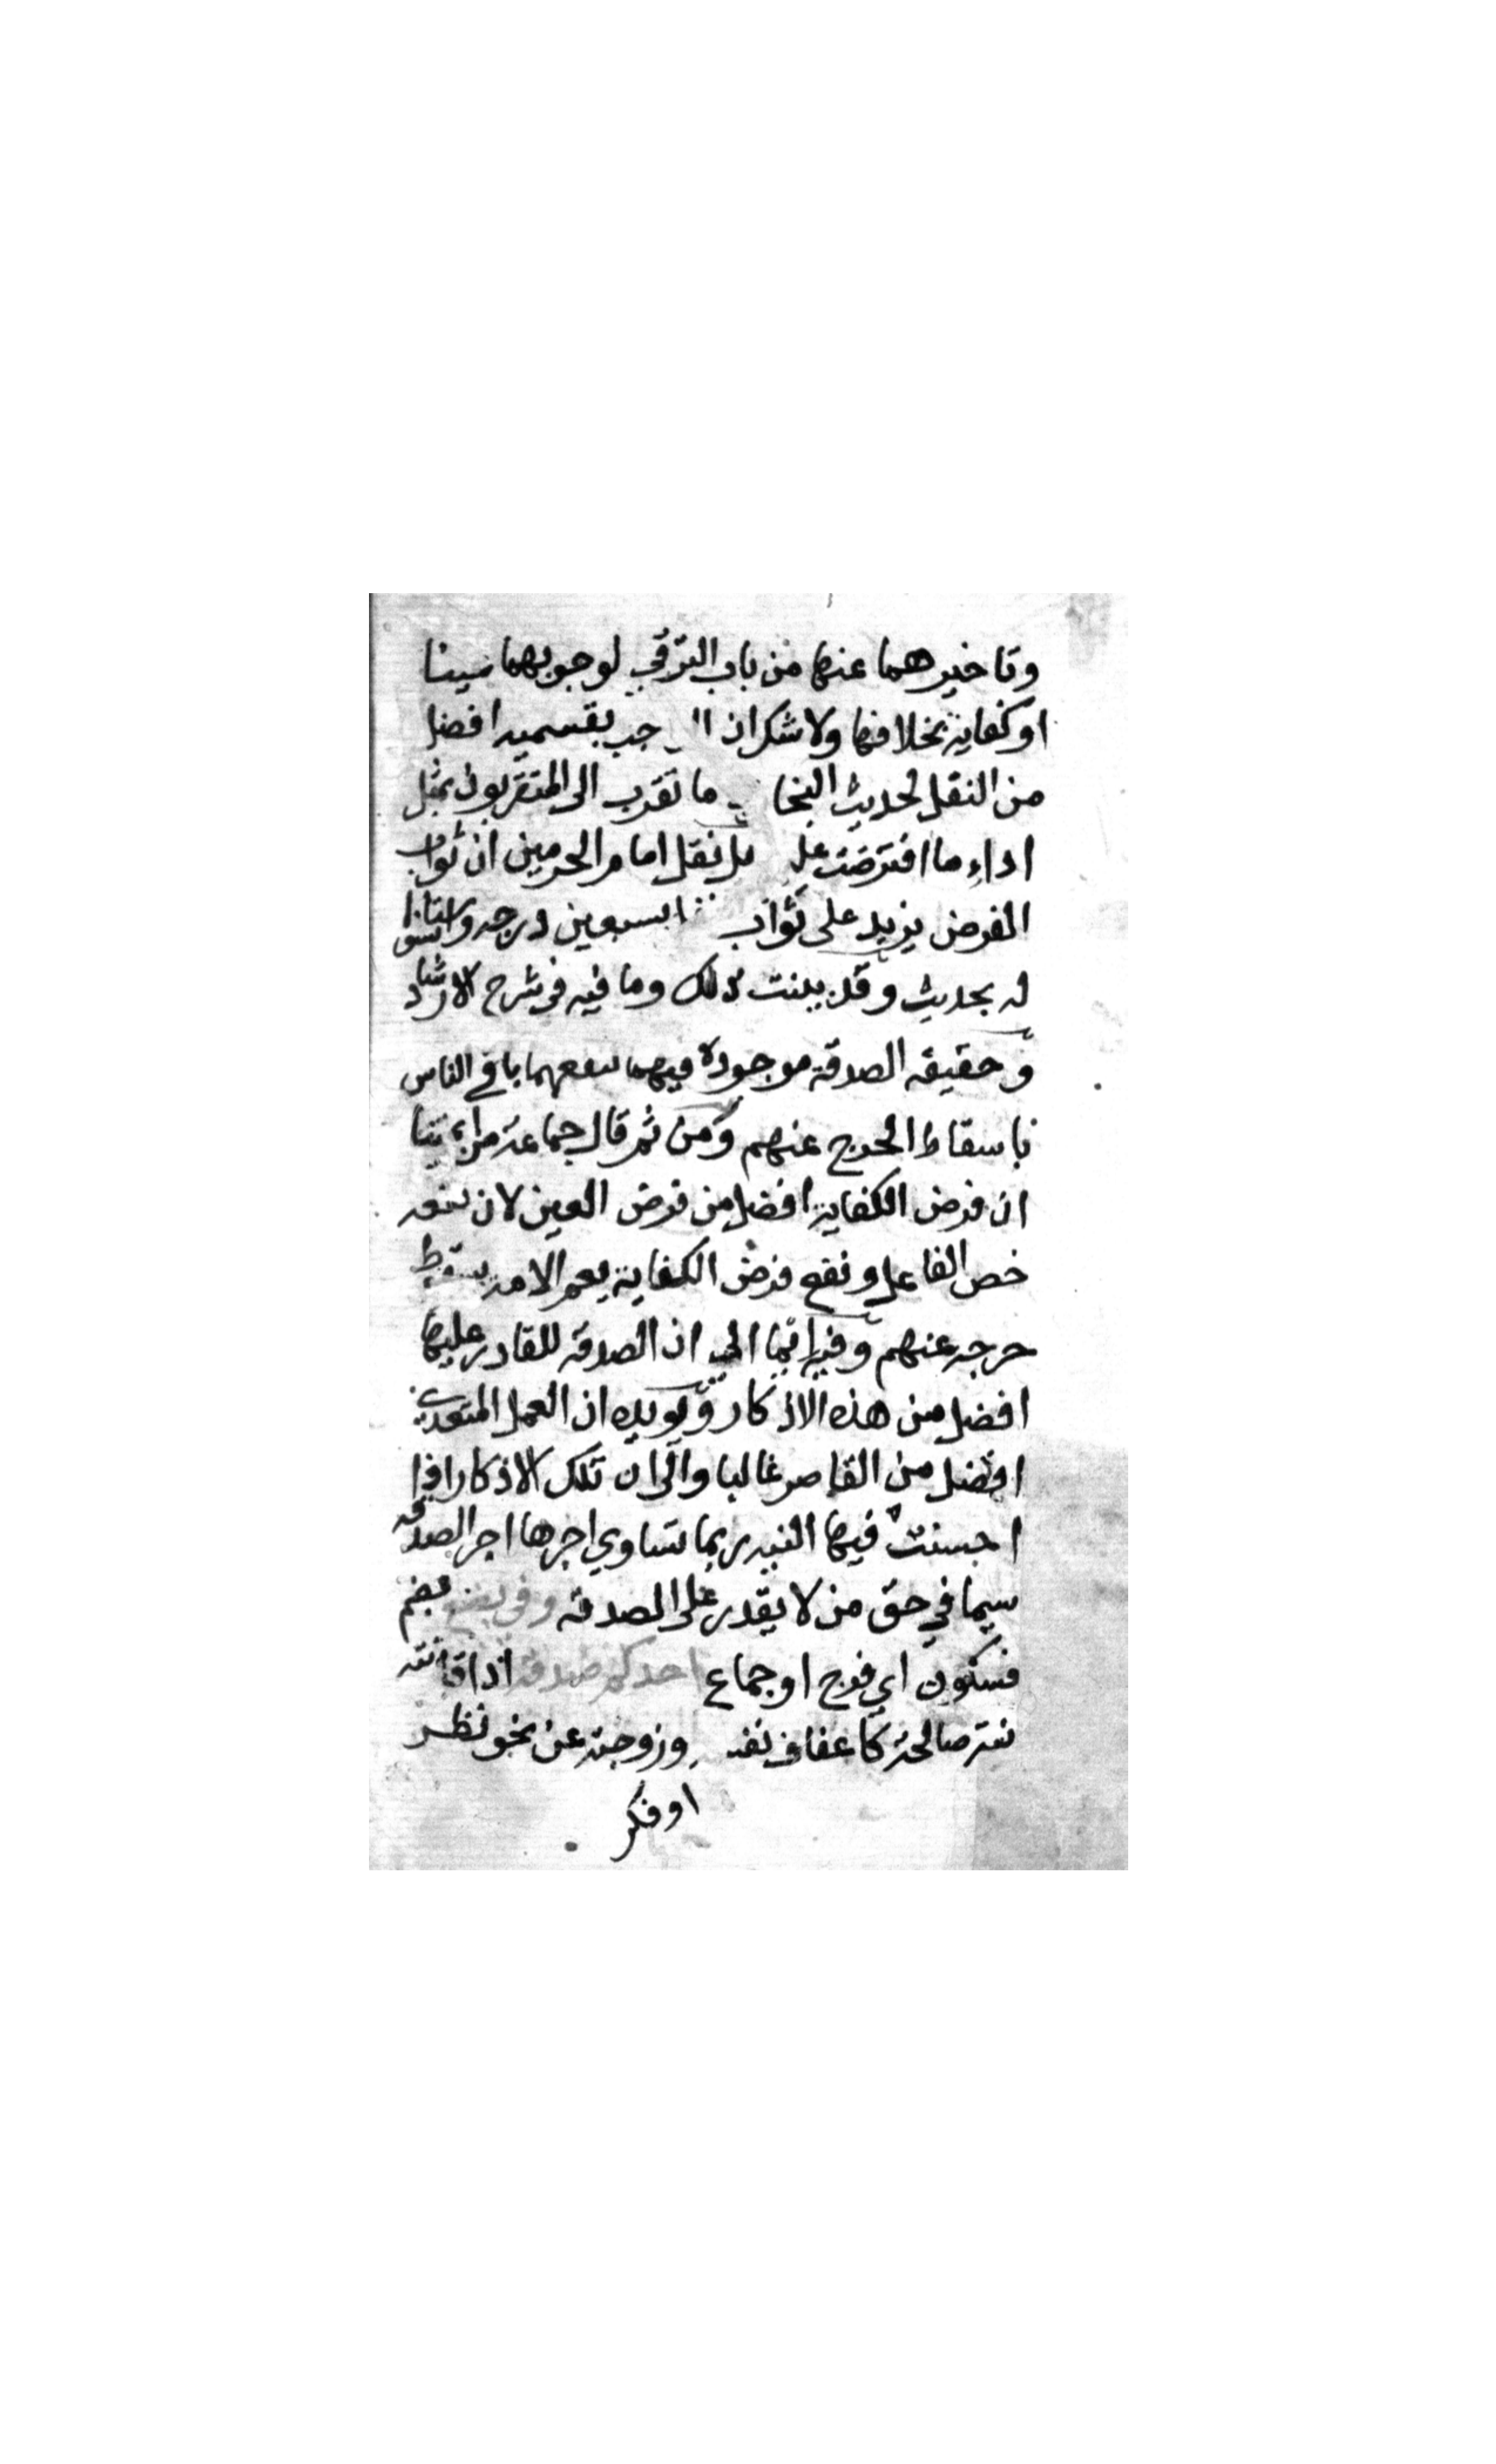 وتاخيرهما عنها من باب الترقي لوجوبهما عينا
او كفاية بخلافها ولا شك ان جب بقسميه افضل
من النفل لحديث البخا ما تقرب الى المتقربون بمثل
اداء ما افترضت علي بل نقل امام الحرمين ان ثواب
الفرض يزيد على ثواب بسبعين درجه واستانسوا
له بحديث وقد بينت ذلك وما فيه في شرح الارشاد
وحقيقه الصدقة موجودة فيهما لنفعهما باقي الناس
باسقاط الحرج عنهم ومن ثم قال جماعة من ايمتنا
ان فرض الكفاية افضل من فرض العين لان نفعه
خص الفاعل ونفع فرض الكفاية يعم الامه بسقوط
حرجه عنهم وفيه ايما الي ان الصدقه للقادر عليها
افضل من هذه الاذكار ويويده ان العمل المتعدي
افضل من القاصر غالبا والى ان تلك الاذكار اذا
احسنت فيها النيه ربما تساوي اجرها اجر الصدقه
سيما في حق من لا يقدر على الصدقه وفي بضع بضم
فسكون اي فرج او جماع احدكم صدقة اذا قارنته
نية صالحة كاعفاف نفسه وزوجته عن نحو نظر
او فكر